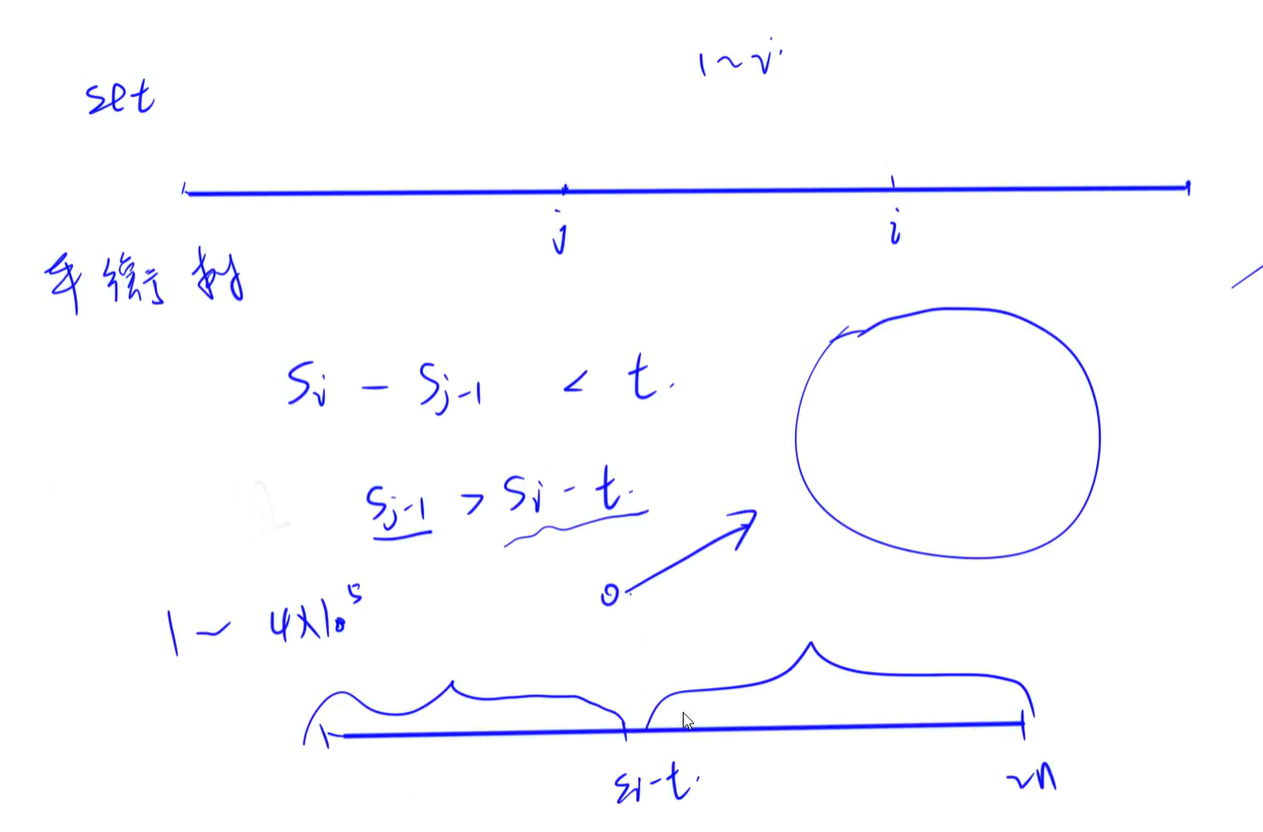 set
1～i
j
i
平衡树
Si - Sj-1 < t.
Sj-1 > Si - t.
0
1～4×10^5
Si-t.
2n